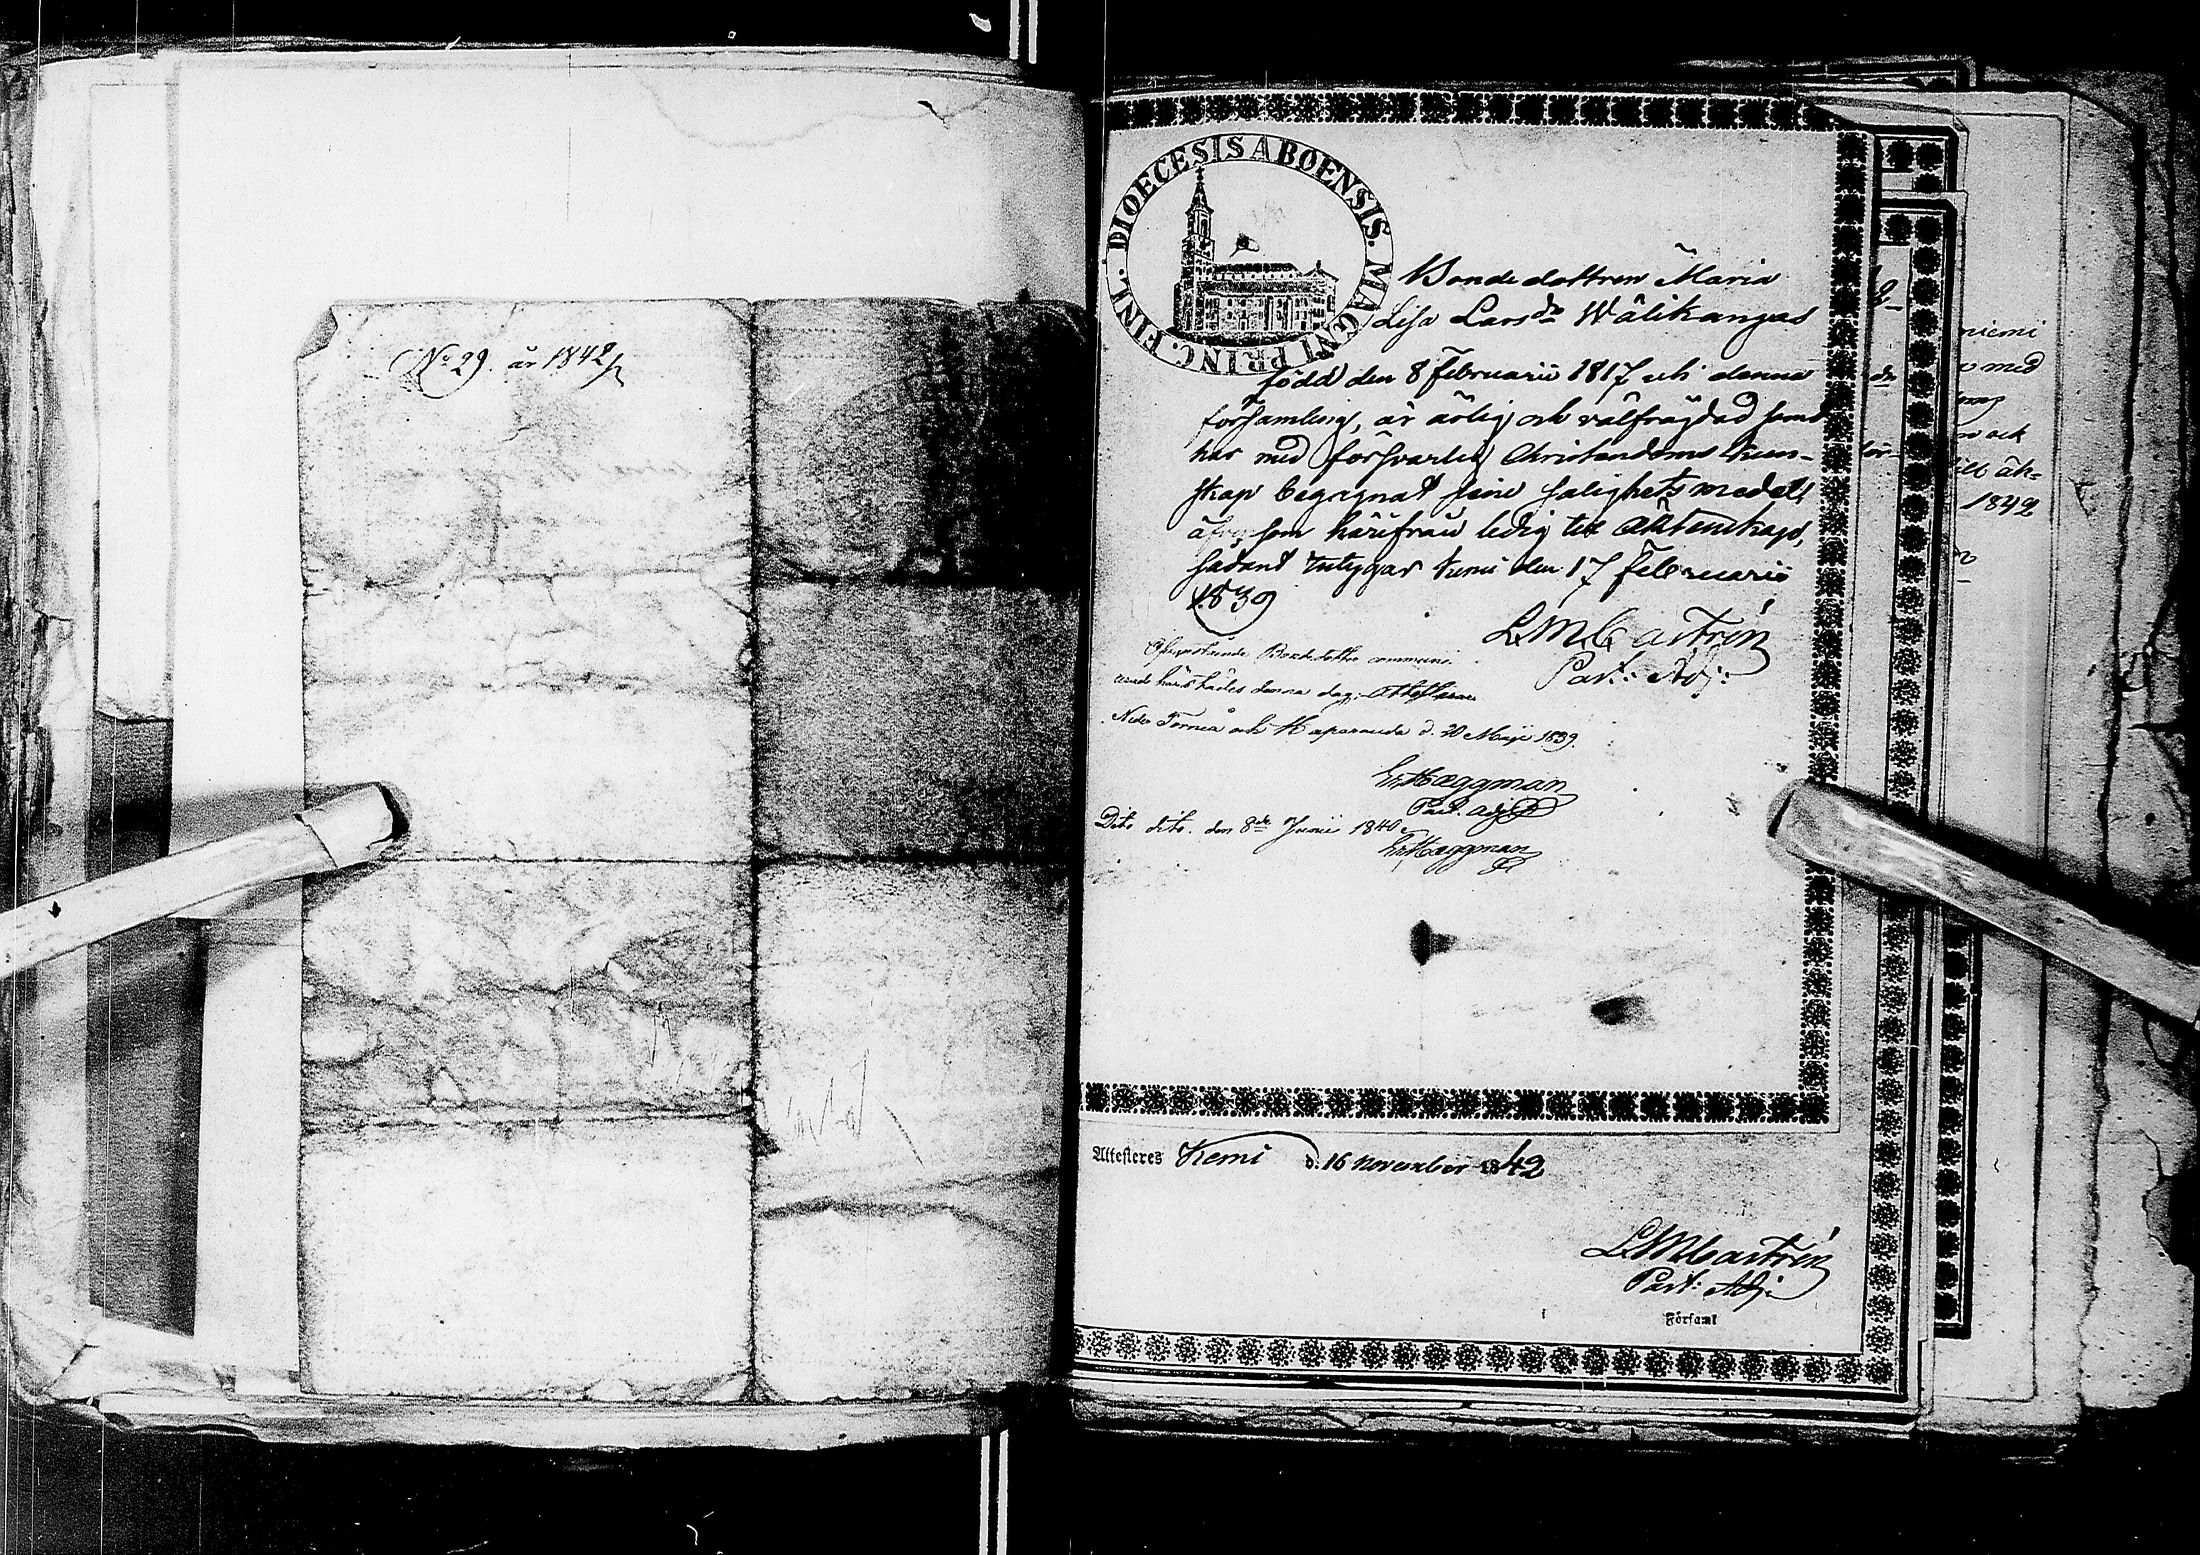 No 29. år 1842
DIOECESIS ABOENSIS. MAGNI PRINC. FINL.
Bondedottren Maria
Lisa Larsdr Wälikangas
född den 8 Februarii 1817 uti denna
församling, är ärlig och välfrägdad samt
har med försvarlig Christendoms kun-
skap begagnat sine salighets medel;
äfven som härifrån ledig till Ächtenskap,
sådant intygar Kemi den 17 Februarii
1839
L M Castrén
Past: Adj:
Ofvanstående Bondedotter communi-
cerade härstädes denna dag; Attesteras
Neder Torneå och Haparanda d. 30 Maji 1839.
Er. Hæggman
Past. adj.
Dito dito. den 8de Junii 1840.
Er. Hæggman
Attesteres Kemi d. 16 november 1842
L M Castrén
Past: Adj:
Församl
niemi
med
och
till äk-
1842